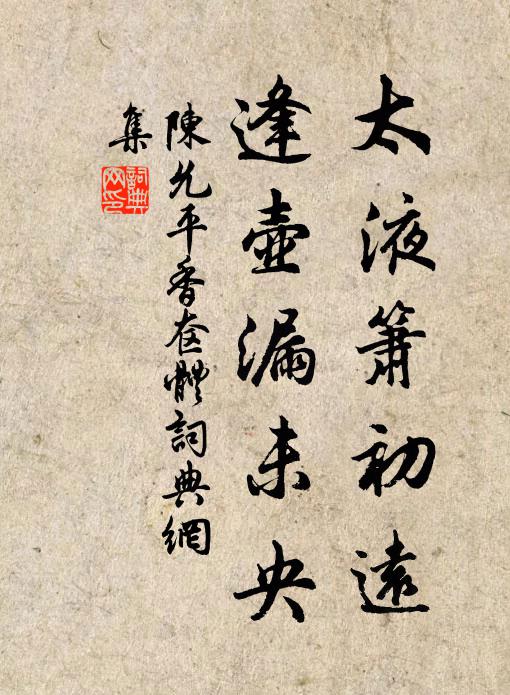 太液簫初遠
逢壺漏未央
陳允平香奩體詞典網
集
詞典
网印